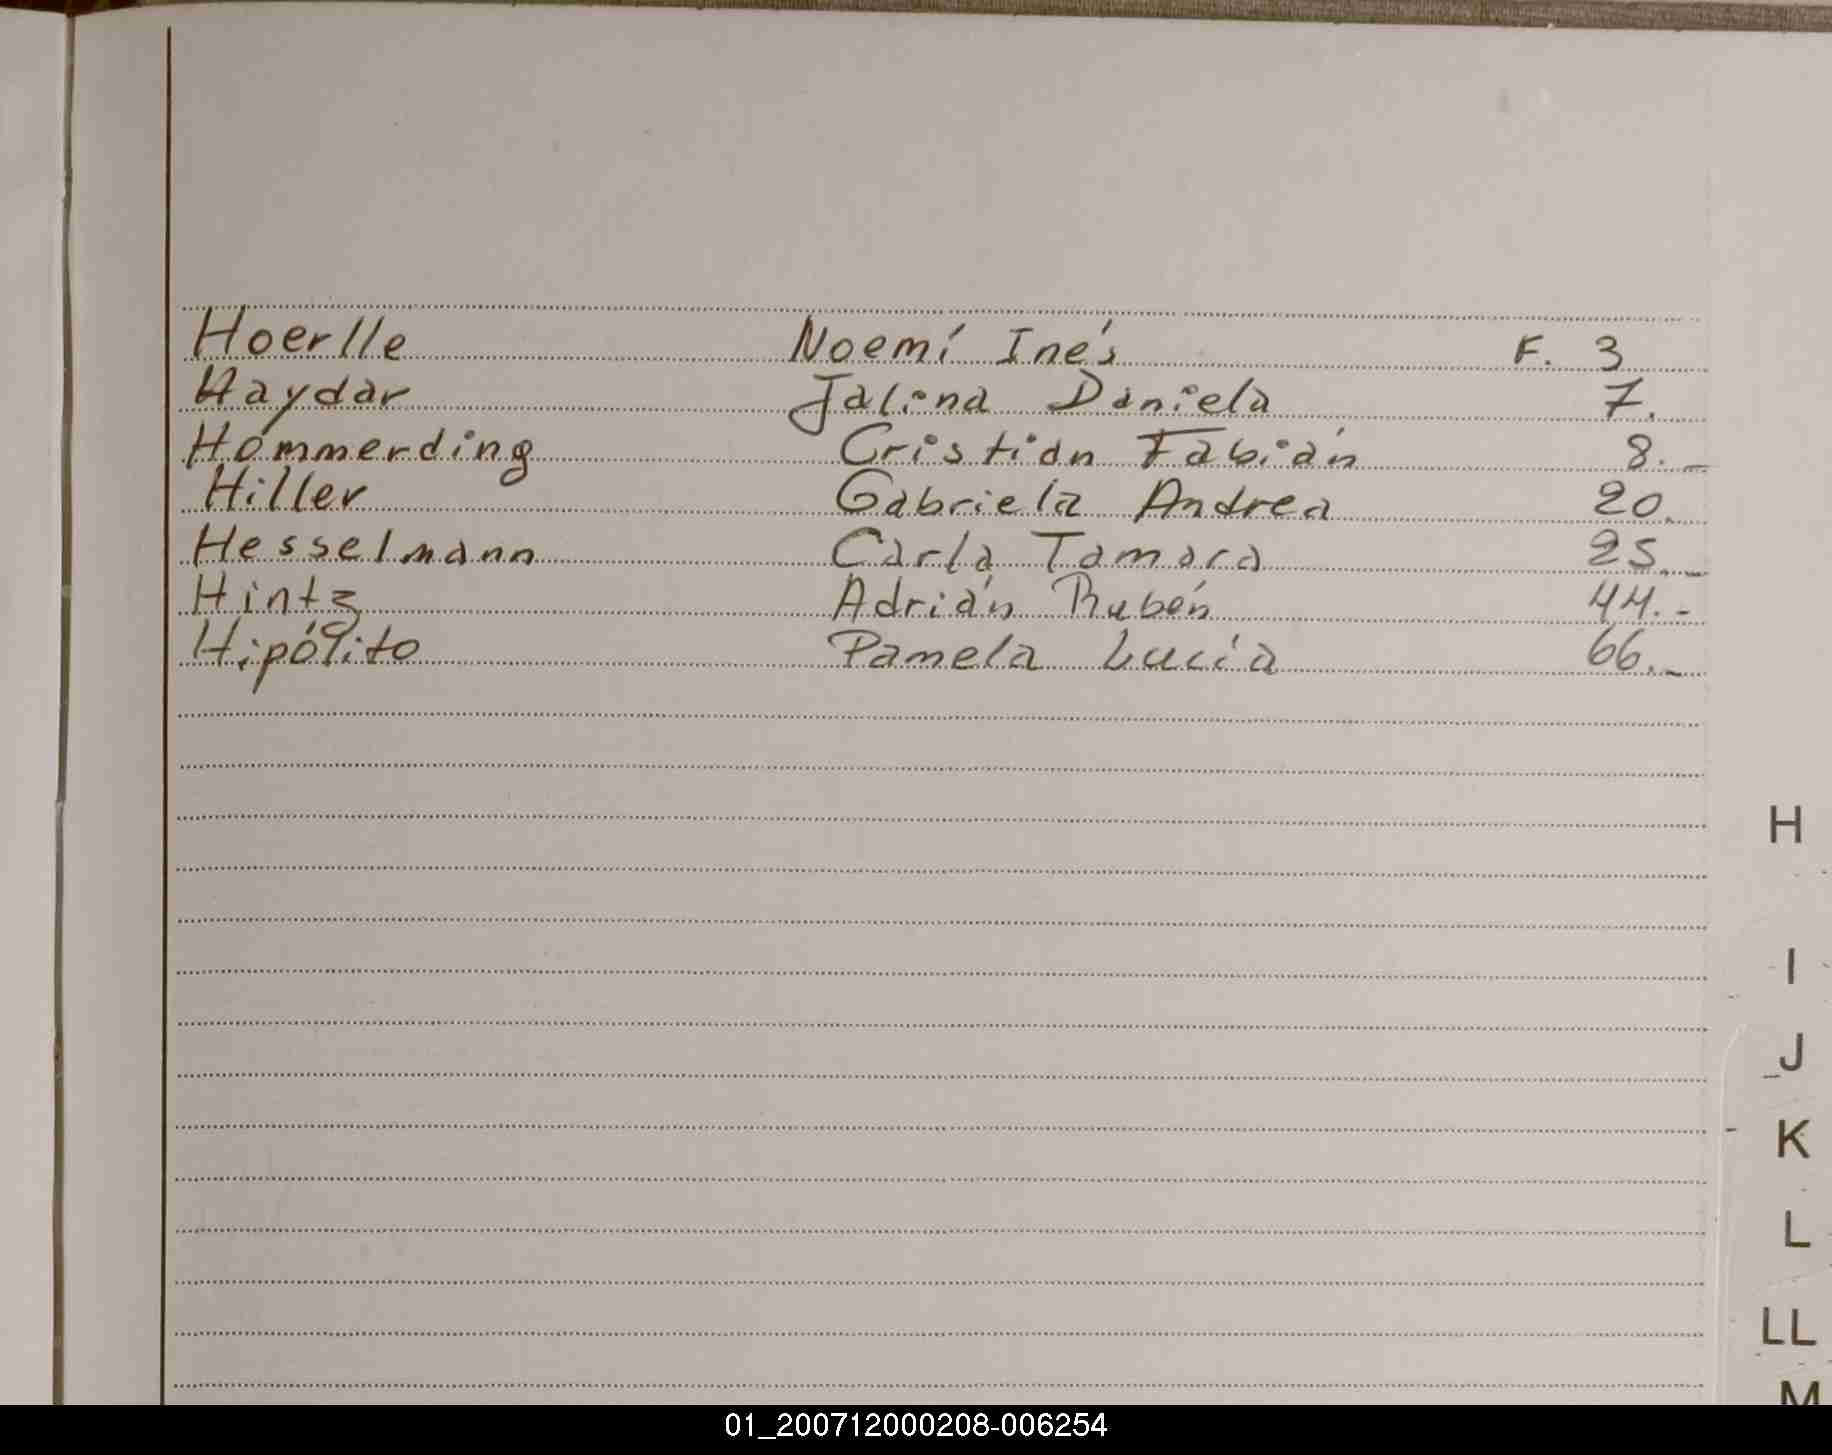 Hoerlle Noemí Inés F. 3
Haydar Jalina Daniela 7.
Hommerding Cristian Fabián 8.-
Hiller Gabriela Andrea 20.
Hesselmann Carla Tamara 25.-
Hintz Adrián Rubén 44.-
Hipólito Pamela Lucía 66.-
H
I
J
K
L
LL
M
01_200712000208-006254